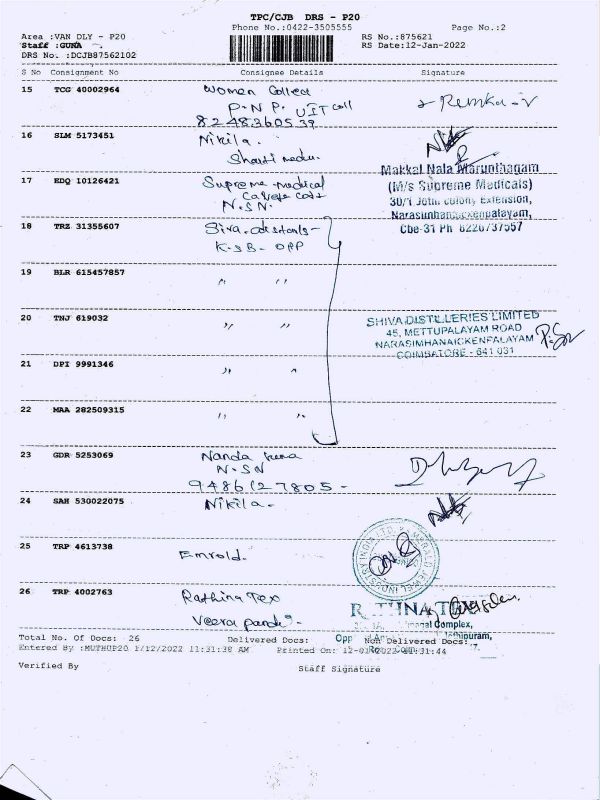 TPC/CJB DRS - P20
Phone No.:0422-3505555 Page No.:2
Area :VAN DLY - P20 RS No.:875621
Staff :GUNA RS Date:12-Jan-2022
DRS No. :DCJB87562102
S No Consignment No Consignee Details Signature
15 TCG 40002964 Women Collect
P.N.P. UIT Coll
8248360539
16 SLM 5173451 Nikila.
Makkal Nala Marunthagam
17 EDQ 10126421 Supreme medical
(M/s Supreme Medicals)
N.S.N.
Narasimhanaickenpalayam,
18 TRZ 31355607
Cbe-31 Ph
K.S.B- OPP
19 BLR 615457857 〃 〃
20 TNJ 619032 〃 〃
SHIVA DISTILLERIES LIMITED
45, METTUPALAYAM ROAD
NARASIMHANAICKENPALAYAM
COIMBATORE - 641 031
21 DPI 9991346 〃 〃
22 MAA 282509315 〃 〃
23 GDR 5253069 Nanda
N.SN
9486127805 -
24 SAH 530022075 Nikila.
25 TRP 4613738
Emrold.
EMERALD JEWEL INDUSTRY INDIA LTD
26 TRP 4002763 Rathina Tex
Veera pandi -
Complex,
Total No. Of Docs: 26 Delivered Docs: Non Delivered Docs:
Entered By :MUTHUP20 1/12/2022 11:31:38 AM Printed On: 12-01-2022 11:31:44
Verified By Staff Signature